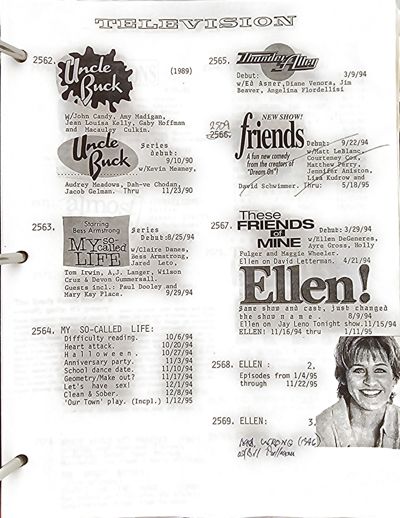 TELEVISION
2562.
Uncle Buck
(1989)
w/John Candy, Amy Madigan,
Jean Louisa Kelly, Gaby Hoffman
and Macauley Culkin.
Uncle Buck
Series
debut:
9/10/90
w/Kevin Meaney,
Audrey Meadows, Dah-ve Chodan,
Jacob Gelman. Thru: 11/23/90
2563.
Starring
Bess Armstrong
MY so-called LIFE
Series
Debut:8/25/94
w/Claire Danes,
Bess Armstrong,
Jared Leto,
Tom Irwin, A.J. Langer, Wilson
Cruz & Devon Gummersall.
Guests incl.: Paul Dooley and
Mary Kay Place. 9/29/94
2564. MY SO-CALLED LIFE:
Difficulty reading. 10/6/94
Heart attack. 10/20/94
Halloween. 10/27/94
Anniversary party. 11/3/94
School dance date. 11/10/94
Geometry/Make out? 11/17/94
Let's have sex! 12/1/94
Clean & Sober. 12/8/94
'Our Town' play. (Incpl.) 1/12/95
2565.
Thunder Alley
Debut: 3/9/94
w/Ed Asner, Diane Venora, Jim
Beaver, Angelina Flordellisi
2509
2566.
NEW SHOW!
friends
A fun new comedy
from the creators of
"Dream On"!
Debut: 9/22/94
w/Matt LeBlanc,
Courteney Cox,
Matthew Perry,
Jennifer Aniston,
Lisa Kudrow and
David Schwimmer. Thru: 5/18/95
2567.
These
FRIENDS
of
MINE
Debut: 3/29/94
w/Ellen DeGeneres,
Ayre Gross, Holly
Fulger and Maggie Wheeler.
Ellen on David Letterman. 4/21/94
Ellen!
Same show and cast, just changed
the show name. 8/9/94
Ellen on Jay Leno Tonight show.11/15/94
ELLEN! 11/16/94 thru 1/11/95
2568. ELLEN: 2.
Episodes from 1/4/95
through 11/22/95
2569. ELLEN: 3.
MR. WRONG (1996)
w/Bill Pullman